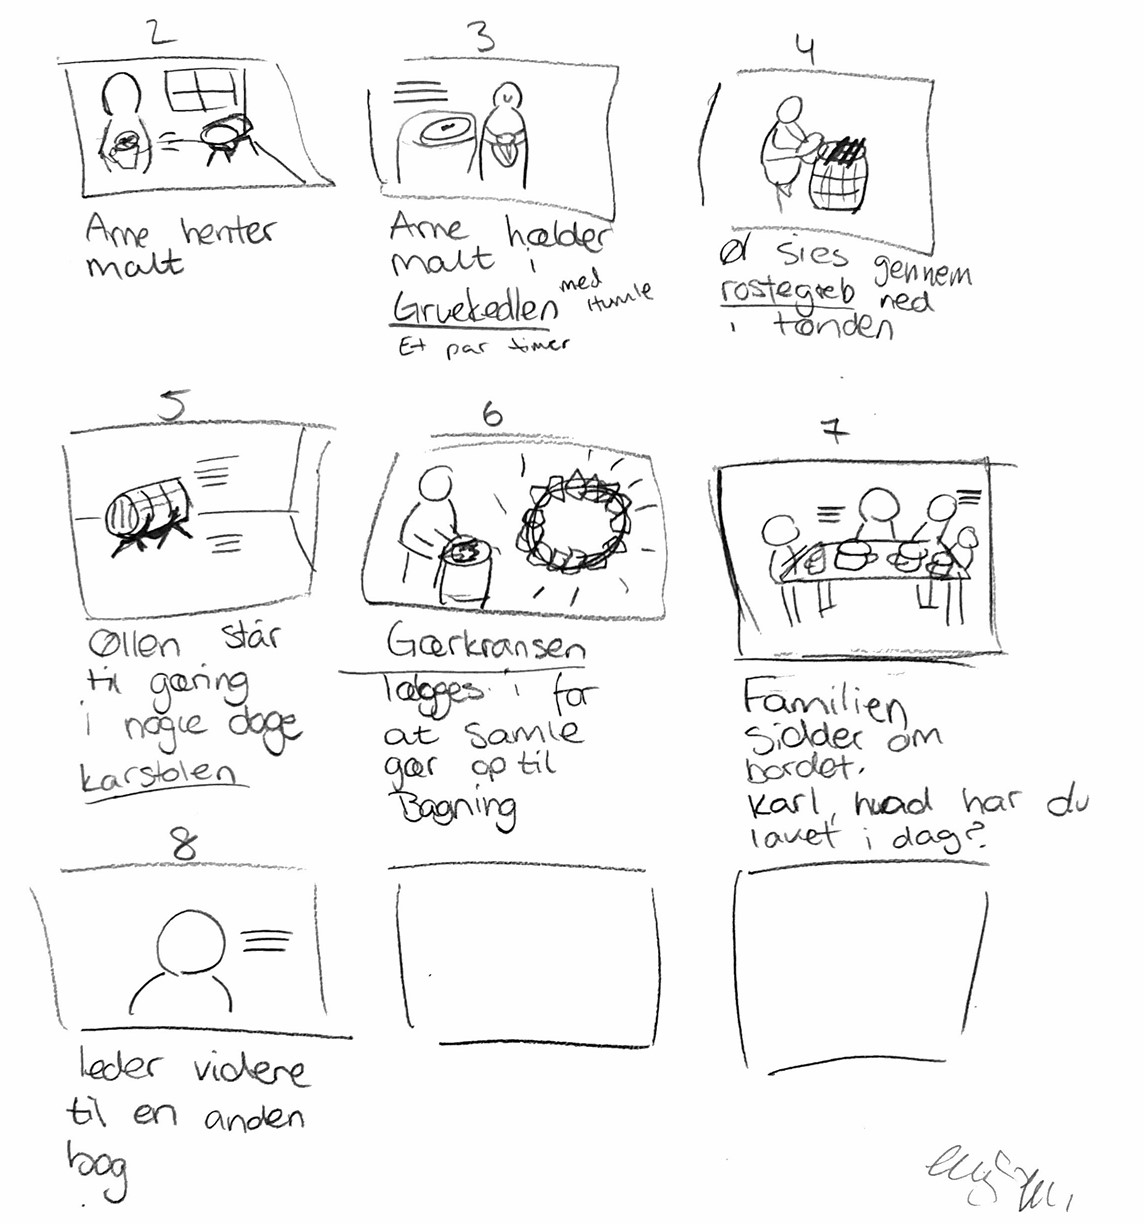 2
Arne henter
malt
3
Arne hælder
malt i
Gruekedlen med
Humle
Et par timer
4
Øl sies gennem
rostegreb ned
i tønden
5
Øllen står
til gæring
i nogle dage
karstolen
6
Gærkransen
lægges i for
at samle
gær op til
Bagning
7
Familien
sidder om
bordet.
Karl, hvad har du
lavet i dag?
8
leder videre
til en anden
bog